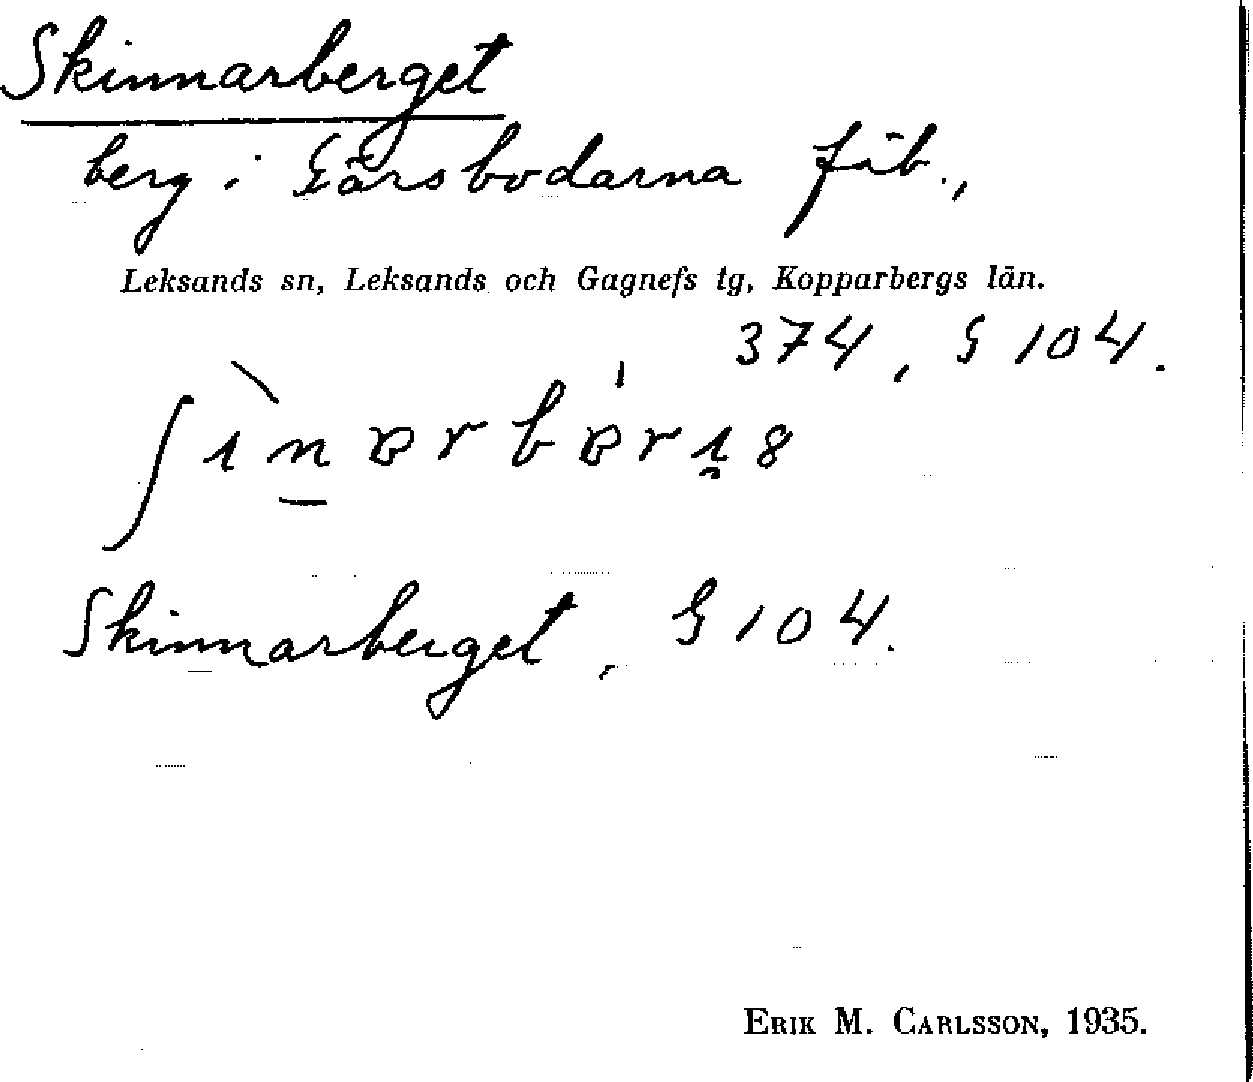 Skinnarberget
berg i Lårsbodarna fäb.,
Leksands sn, Leksands och Gagnefs tg, Kopparbergs län.
374, § 104.
Skinnarberget, § 104.
ERIK M. CARLSSON, 1935.